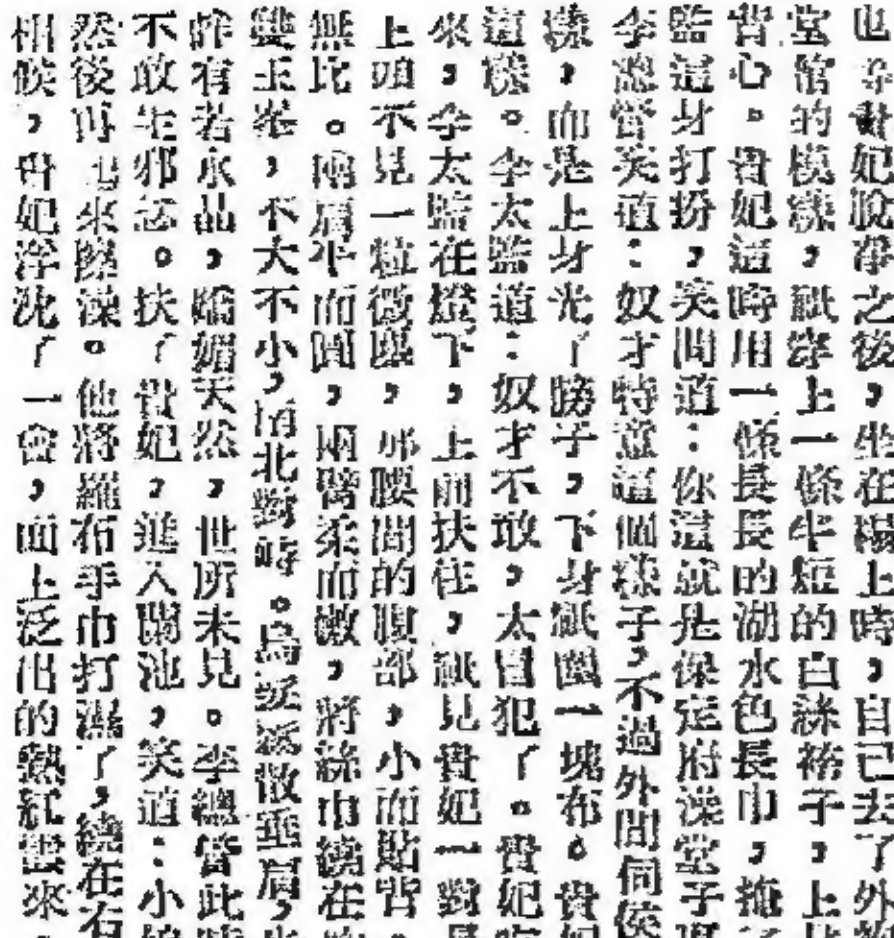 貴妃脫孝之後，坐在榻上時，自己去了外
堂倌的模樣，祇穿上一條牛短的白綠褲子，上
背心。貴妃這時用一條長長的湖水色長巾，掩
監這身打扮，笑問道：你這就是保定府澡堂子
李總管笑道：奴才特意這個樣子，不過外間伺侯
樣，而是上身光了膀子，下身祇圍一塊布。貴妃
這樣。李太監道：奴才不敢，太冒犯了。貴妃
來，李太監在燈下，上前扶住，祇見貴妃一對
上頭不見一粒微瑕，那腰間的腹部，小而貼背。
無比。兩肩平而圓，兩臂柔而嫩，將絲巾繞在
雙玉峯，不大不小，南北對峙。烏髮披散垂肩，
有若水晶，嬌媚天然，世所未見。李總管此時
不敢生邪念。扶了貴妃，進入陽池，笑道：小
然後再上來擦澡。他將羅布手巾打濕了，繞在右
相候，貴妃浮沈了一會，面上泛出的熱紅雲來。